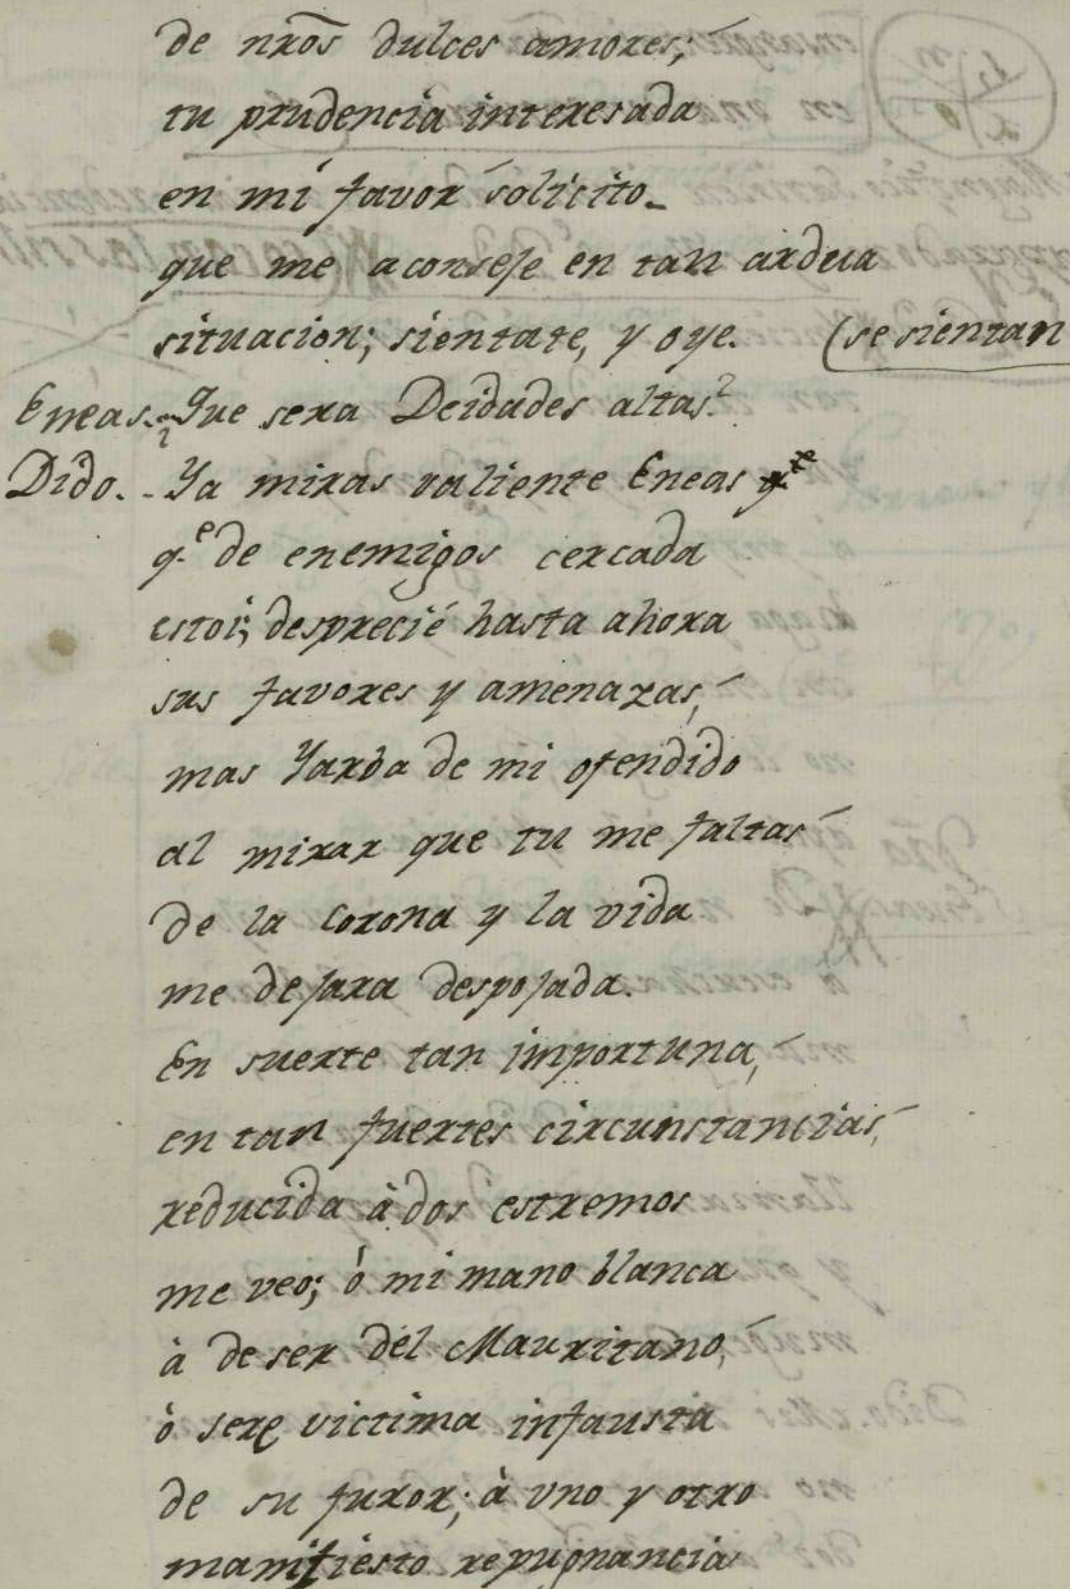 de nrõs dulces amores;
tu prudencia interesada
en mi favor solicito
que me aconseje en tan ardua
situacion; sientate, y oye. (se sientan
Eneas.. Que sera Deidades altas?
Dido. - Ya miras valiente Eneas
q.e de enemigos cercada
estoi; desprecié hasta ahora
sus favores y amenazas,
mas Yarba de mi ofendido
al mirar que tu me faltas
de la corona y la vida
me dejara despojada.
En suerte tan importuna,
en tan fuertes circunstancias,
reducida à dos estremos
me veo; ò mi mano blanca
à de ser del Mauritano,
ò sere victima infausta
de su furor; à uno y otro
manifiesto repugnancia